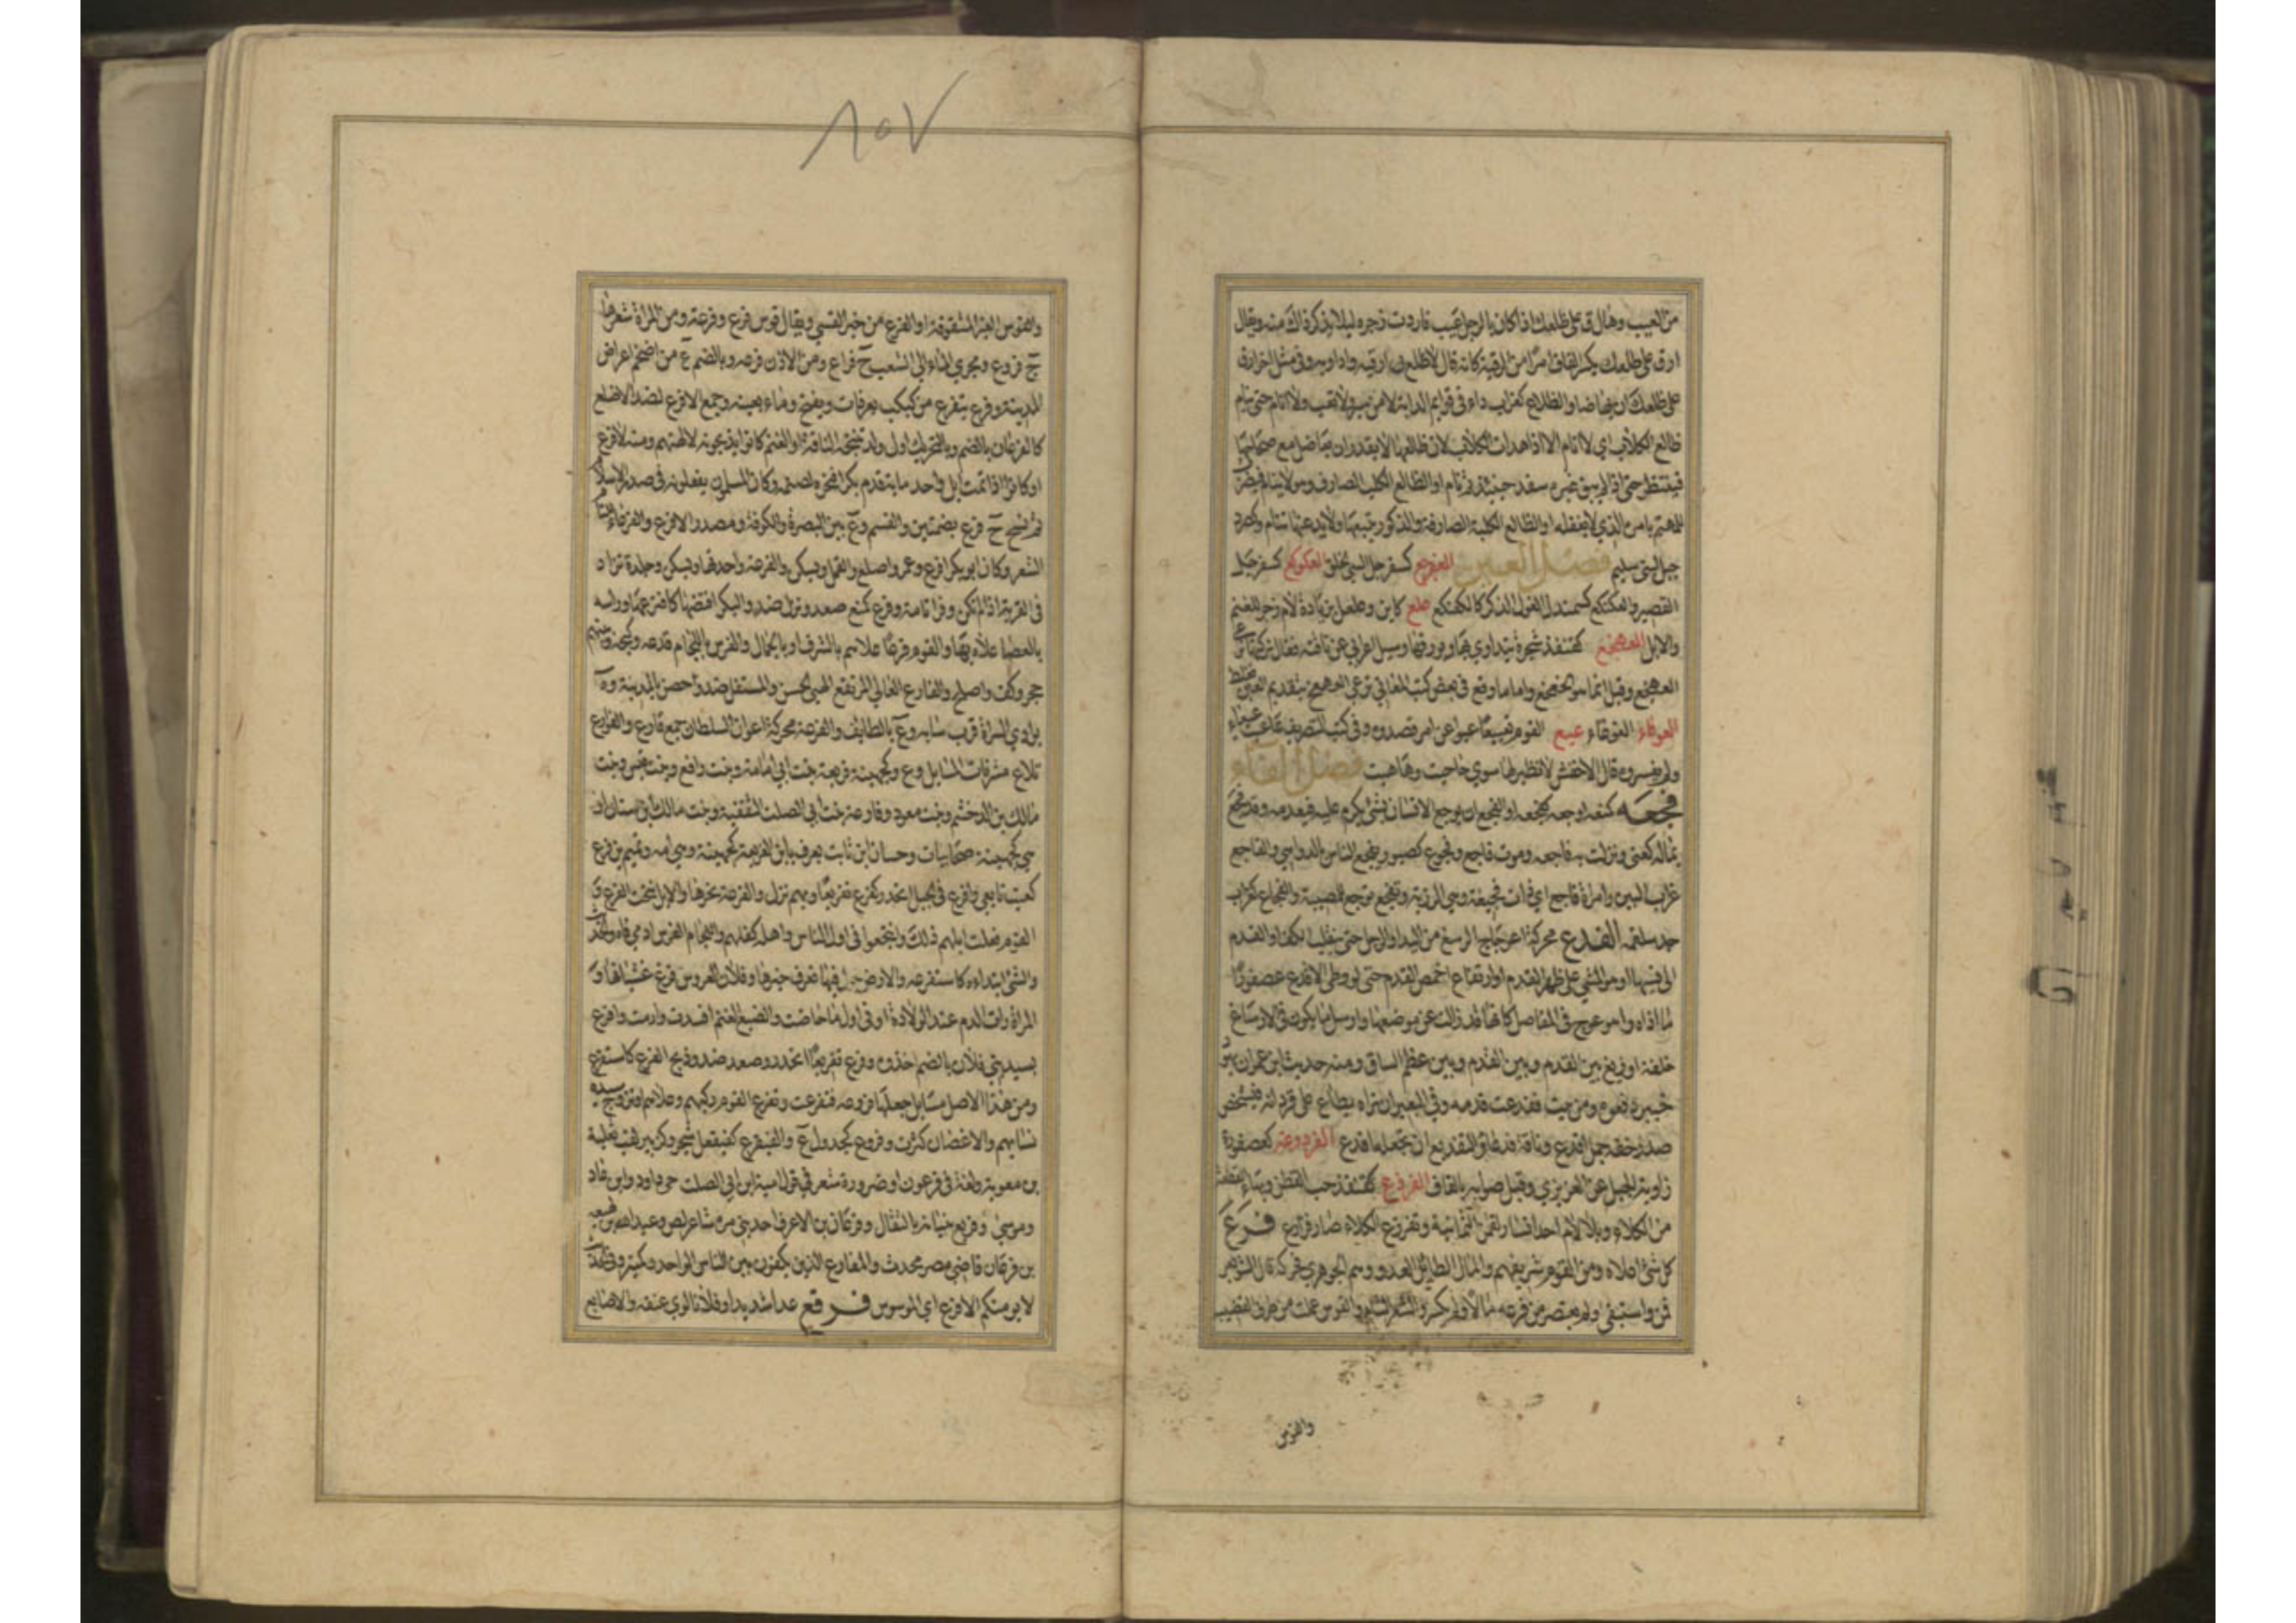 من العيب وهال ق على ظلعك اذا كان بالرجل عيب فاردت زجره ليلا يذكر ذاك منه ويقال
ارق على ظلعك بكسر القاف امرا من الرقية كانه قال لا ظلع في ارقيه وداويه وفي مثل اخر ارق
على ظلعك ان يهاضا والظلاع كغراب داء في قوايم الدابة لا من سير ولا تعب ولا انام حتى ينام
ظالع الكلاب اي لا انام الا اذا هدات الكلاب لان ظالعها لا يقدر ان يعاظل مع صحاحها
فينتظر حتى اذا لم يبق غيره سفد حينئذ ثم نام او الظالع الكلب الصارف وهو لا ينام فيضرب
للمهتم بامره الذي لا يغفله او الظالع الكلبة الصارفة والذكور يتبعنها ولا يدعنها تنام وكصرد
جبل لبني سليم فصل العين كسفرجل السيئ الخلق العكوكع كسفرجل
القصير والعكنكع كسمندل الغول الذكر كالكعنكع علع كاين وعلعل بزيادة لام زجر للغنم
والابل العهخع كقنفذ شجرة يتداوي بها وبورقها وسيل اعرابي عن ناقته فقال تركتها ترعى
العهخع وقيل انما هو الخعخع واما ما وقع في بعض كتب المعاني ترعى العهعخ بتقديم العين فغلط
العوقاء الغوقاء عيع القوم تعييعا عيوا عن امر قصدوه وفي كتب التصريف عاعيت عيعاء
ولم يفسروه قال الاخفش لا نظير لها سوى حاحيت وهاهيت فصل الفاء
فجعه كمنعه اوجعه كفجعه او الفجع ان يوجع الانسان بشئ يكرم عليه فيعدمه وقد فجع
بماله كعنى ونزلت به فاجعه وموت فاجع وفجوع كصبور يفجع الناس بالدواهي والفاجع
غراب البين وامراة فاجع اي ذات فجيعة وهي الرزية وتفجع توجع للمصيبة والفجاع كغراب
جد سلمة الفدع محركة اعوجاج الرسغ من اليد او الرجل حتى ينقلب الكف او القدم
الى انسيها او هو المشي على ظهر القدم او ارتفاع اخمص القدم حتى لو وطئ الافدع عصفورا
ما اذاه او هو عوج في المفاصل كانها قد زالت عن موضعها واو سل ما يكون في الارساغ
خلقة او زيغ بين القدم وبين عظم الساق ومنه حديث ابن عمر ان يهود
خيبر دفعوه من بيت ففدعت قدمه وفي البعير ان تراه يطأ على ام قردانه فيشخص
صدر خفه جمل افدع وناقة فدعاء والتفديع ان تجعله افدع الفردوعة كعصفورة
زاوية الجبل عن العزيزي وقيل صوابه بالقاف كقنفذ حب القطن وبهاء القطعة
من الكلاء وبلا لام احد انسار لقمن الثمانية وتفرزع الكلاء صار فرازع فرع
كل شئ اعلاه ومن القوم شريفهم والمال الطائل المعد ووهم الجوهري فحركه قال الشويعر
فمن واستبقى ولم يعتصر من فرعه مالا ولم يكسر والشعر التام والقوس عملت من طرف القضيب
والقوس
٨٥٧
والقوس الغير المشقوقة او الفرع من خير القسي ويقال قوس فرع وفرعة ومن المراة شعرها
ج فروع ومجرى الماء الى الشعب ج فراع ومن الاذن فرعه وبالضم ع من اضخم اعراض
المدينة وفرع يتفرع من كبكب بعرفات ويفتح وماء بعينه وجمع الافرع لضد الاصلع
كالفرعان بالضم وبالتحريك اول ولد تنتجه الناقة او الغنم كانوا يذبحونه لالهتهم ومنه لا فرع
او كانوا اذا تمت ابل واحد ماية قدم بكره فنحره لصنمه وكان المسلمون يفعلونه في صدر الاسلام
ثم نسخ ج فرع بضمتين والقسم وع بين البصرة والكوفة ومصدر الافرع والفرعاء للتام
الشعر وكان ابو بكر افرع وعمر اصلع والقمل ويسكن والفرعة واحدتها وتسكن وجلدة تزاد
في القربة اذا لم تكن وفراء تامة وفرع كمنع صعد ونزل ضد والبكر افتضها كافترعها وراسه
بالعصا علاه بها والقوم فرعا علاهم بالشرف او بالجمال والفرس باللجام قدعه وكبحه وبينهم
حجز وكف واصلح والفارع العالي المرتفع الهيئ الحسن والمستفل ضد وحصن بالمدينة وة
بوادي السراة قرب سايه وع بالطايف والفرعة محركة اعوان السلطان جمع فارع والفوارع
تلاع مشرفات المسايل وع وكجهينة فريعة بنت ابي امامة وبنت رافع وبنت قيس وبنت
مالك بن الدخشم وبنت معوذ وفارعة بنت ابي الصلت الثقفية وبنت مالك بن سنان او
هي كجهينة صحابيات وحسان بن ثابت يعرف بابن الفريعة كجهينة وهي امه وتميم بن فرع
كعنب تابعي وافرع في الجبل انحدر كفرع تفريعا وبهم نزل والفرعة نحرها والابل نتجت الفرع و
القوم فعلت ابلهم ذلك وانتجعوا في اول الناس واهله كفلهم واللجام الفرس ادمي فاه
والشئ ابتداه كاستفرعه والارض جول فيها فعرف خبرها وفلان العروس فرغ غشيانها و
المراة رات الدم عند الولادة او في اول ما حاضت والضبع الغنم افسدت وادمت وافرع
بسيد بني فلان بالضم اخذوه وفرع تفريعا انحدر وصعد ضد وذبح الفرع كاستفرع
ومن هذا الاصل مسايل جعلها فروعه فتفرعت وتفرع القوم ركبهم وعلاهم او تزوج سيده
نسايهم والاغصان كثرت وفروع كجدول ع والفيفرع كفيفعل شجر وكزبير لقب ثعلبة
بن معوية ولغة في فرعون او ضرورة شعر في قول امية ابن ابي الصلت حي داود وابن عاد
وموسى وفريع بنيانه بالثقال وفرعان بن الاعرف احد بني مره شاعر لص وعبدالله بن لهيعه
بن فرعان قاضي مصر محدث والمفارع الذين يكفون بين الناس الواحد كمنبر وفي الحديث
لا يؤمنكم الافرع اي الموسوس فرقع عدا شديدا وفلانا لوى عنقه والاصابع